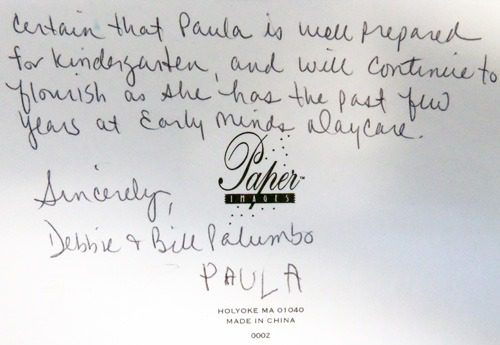 certain that Paula is well prepared
for kindergarten, and will continue to
flourish as she has the past few
years at Early Minds Daycare.
Sincerely,
Paper™
IMAGES
Debbie & Bill Palumbo
PAULA
HOLYOKE MA 01040
MADE IN CHINA
0002